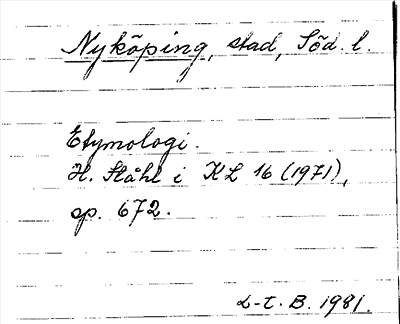 Nyköping, stad, Söd. l.
Etymologi.
H. Ståhl i KL 16 (1971),
sp. 672.
L-t. B. 1981.